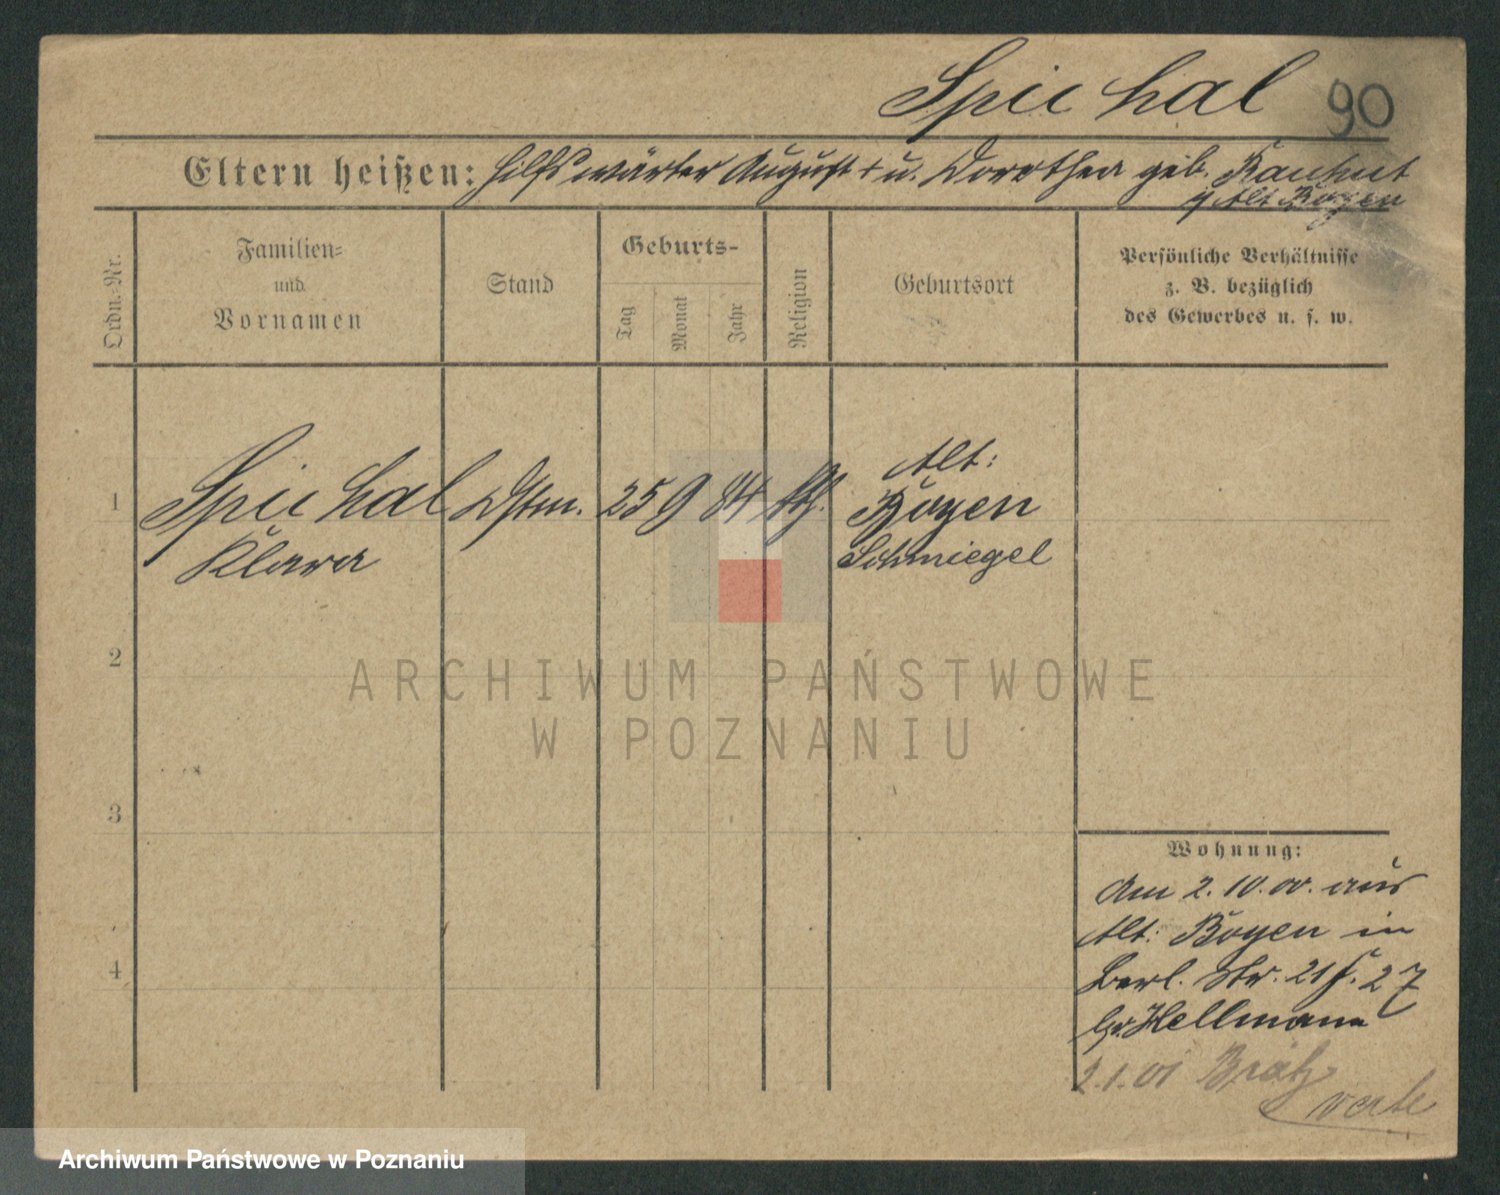 Spichal 90
Eltern heißen: Hilfswärter August + u. Dorothea geb.
Alt Boyen
Ordn.-Nr.
Familien-
und
Vornamen
Stand
Geburts-
Tag
Monat
Jahr
Religion
Geburtsort
Persönliche Verhältnisse
z. B. bezüglich
des Gewerbes u. s. w.
1
Spichal
Klara
Dstm.
25 9 84
Alt:
Boyen
Schmiegel
2
ARCHIWUM PAŃSTWOWE
W POZNANIU
3
Wohnung:
Am 2. 10. 00. aus
Alt: Boyen in
Berl. Str. 21 f. 27
Hellmann
4
2.1.01 Brätz
Archiwum Państwowe w Poznaniu